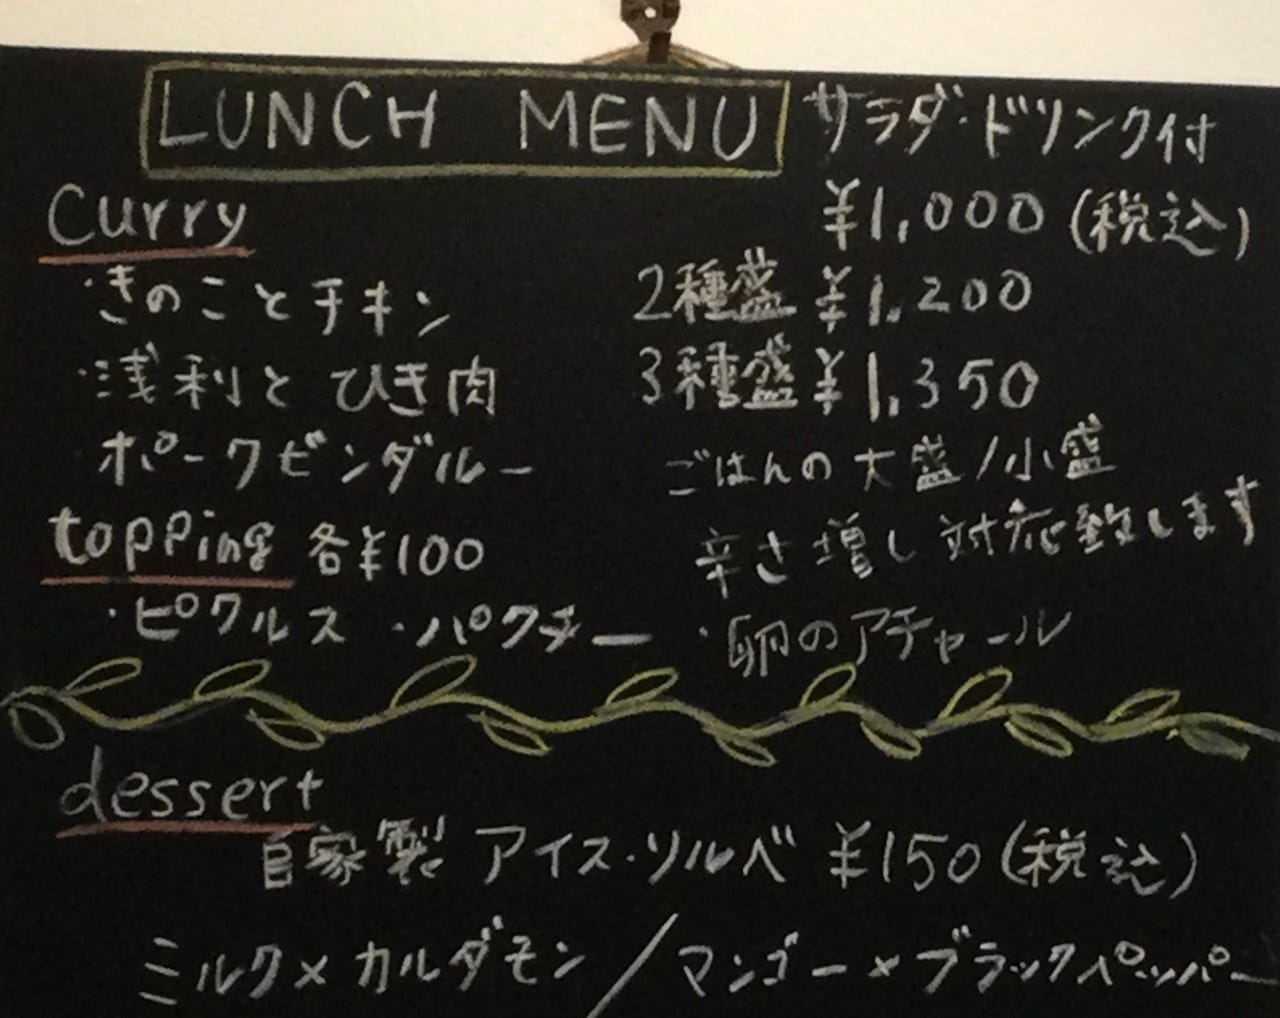 LUNCH MENU サラダ・ドリンク付
¥1,000 (税込)
curry
・きのことチキン 2種盛 ¥1,200
・浅利とひき肉 3種盛 ¥1,350
・ポークビンダルー ごはんの大盛/小盛
辛さ増し対応致します
topping 各¥100
・ピクルス ・パクチー ・卵のアチャール
dessert
自家製 アイス・ソルベ ¥150 (税込)
ミルク×カルダモン/マンゴー×ブラックペッパー